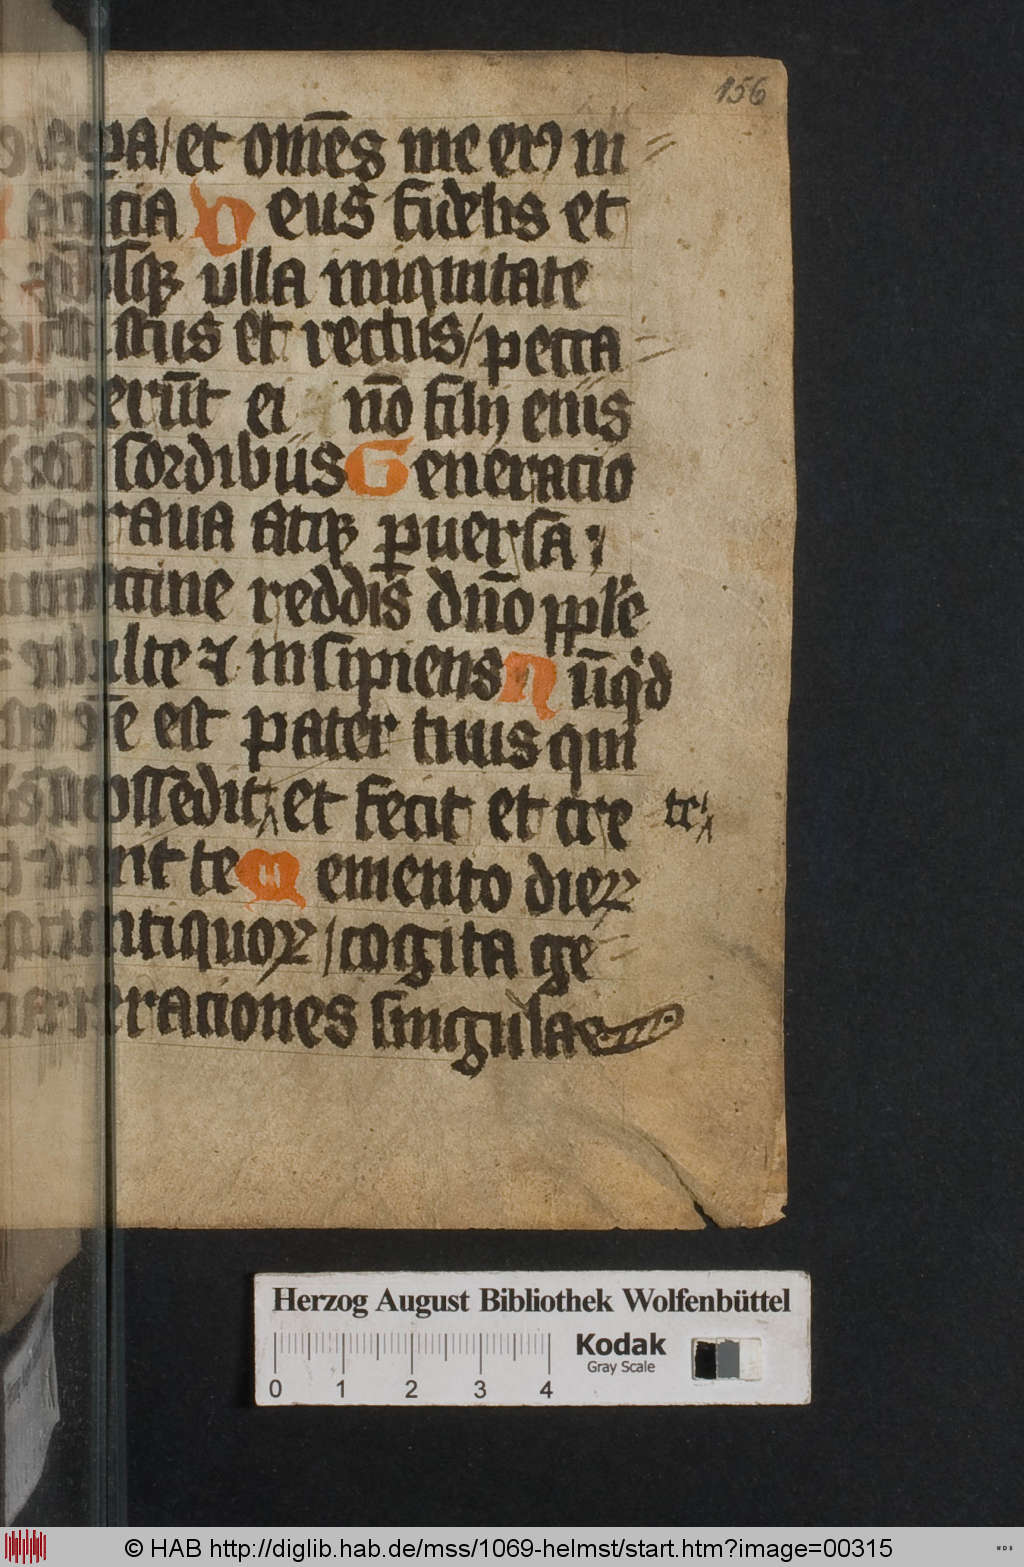 156
pera/ et om̄es uie eiꝰ iu
dicia Deus fidelis et
absqꝫ ulla iniquitate
iustus et rectus/ pecca
uerūt ei nō filij eius
sordibus Generacio
praua atqꝫ ꝑuersa;
reddis dn̄o pple
stulte ⁊ insipiens Nūqͥd
nō ip̄e est pater tuus qui
possedit te et fecit et cre
auit te Memento dieꝝ
antiquoꝝ/ cogita ge
neraciones singulas
Herzog August Bibliothek Wolfenbüttel
Kodak
Gray Scale
0 1 2 3 4
© HAB http://diglib.hab.de/mss/1069-helmst/start.htm?image=00315